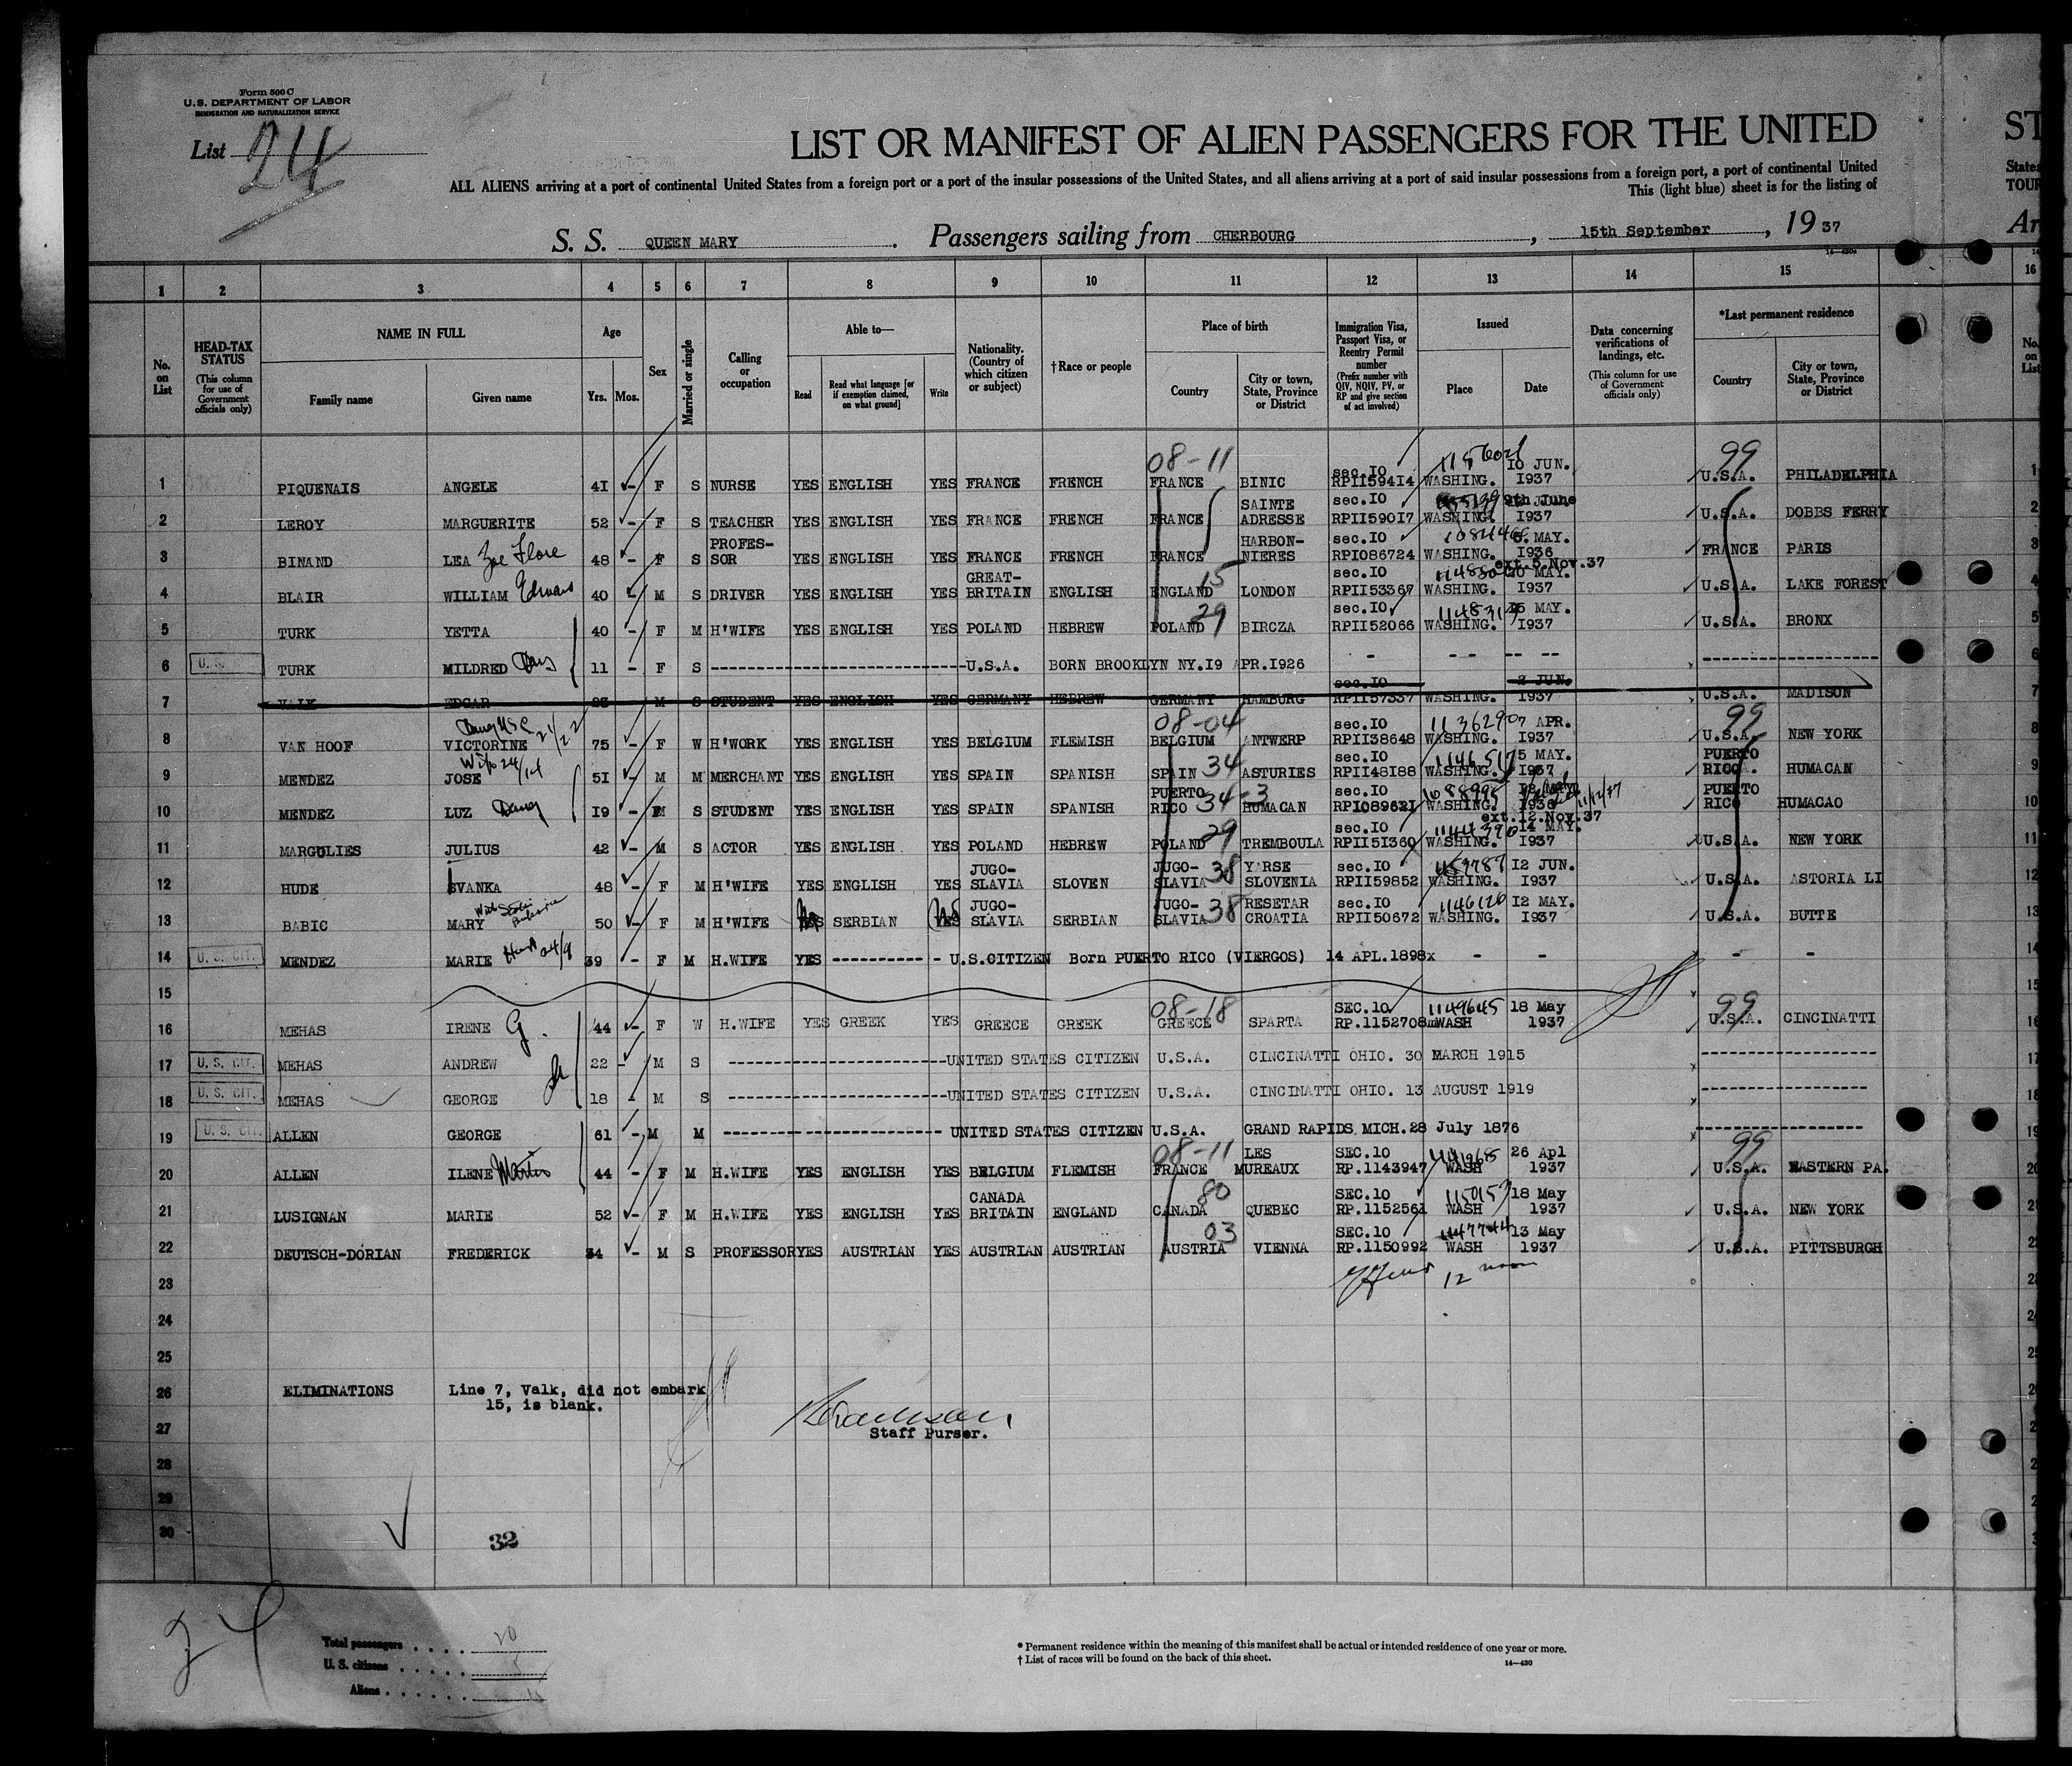 Form 500 C
U.S. DEPARTMENT OF LABOR
IMMIGRATION AND NATURALIZATION SERVICE
List 24
LIST OR MANIFEST OF ALIEN PASSENGERS FOR THE UNITED ST
ALL ALIENS arriving at a port of continental United States from a foreign port or a port of the insular possessions of the United States, and all aliens arriving at a port of said insular possessions from a foreign port, a port of continental United States
This (light blue) sheet is for the listing of TOUR
S. S. QUEEN MARY. Passengers sailing from CHERBOURG, 15th September, 19 37 Ar
14—430a
1 2 3 4 5 6 7 8 9 10 11 12 13 14 15 16
No. on List
HEAD-TAX STATUS (This column for use of Government officials only)
NAME IN FULL
Family name Given name
Age Yrs. Mos.
Sex
Married or single
Calling or occupation
Able to—
Read Read what language [or if exemption claimed, on what ground] Write
Nationality. (Country of which citizen or subject)
†Race or people
Place of birth
Country City or town, State, Province or District
Immigration Visa, Passport Visa, or Reentry Permit number (Prefix number with QIV, NQIV, PV, or RP and give section of act involved)
Issued
Place Date
Data concerning verifications of landings, etc. (This column for use of Government officials only)
*Last permanent residence
Country City or town, State, Province or District
No. on List
08-11 99
1 PIQUENAIS ANGELE 4I - F S NURSE YES ENGLISH YES FRANCE FRENCH FRANCE BINIC sec.IO RPII594I4 WASHING. IO JUN. I937 U.S.A. PHILADELPHIA
2 LEROY MARGUERITE 52 - F S TEACHER YES ENGLISH YES FRANCE FRENCH FRANCE SAINTE ADRESSE sec.IO RPII590I7 WASHING. 9th June I937 U.S.A. DOBBS FERRY
3 BINAND LEA Zoe Flore 48 - F S PROFES- SOR YES ENGLISH YES FRANCE FRENCH FRANCE HARBON- NIERES sec.IO RPI086724 WASHING. MAY. I936 ext.5.Nov.37 FRANCE PARIS
4 BLAIR WILLIAM Edward 40 - M S DRIVER YES ENGLISH YES GREAT- BRITAIN ENGLISH ENGLAND 15 LONDON sec.IO RPII53367 WASHING. 20 MAY. I937 U.S.A. LAKE FOREST
5 TURK YETTA 40 - F M H'WIFE YES ENGLISH YES POLAND HEBREW POLAND 29 BIRCZA sec.IO RPII52066 WASHING. MAY. I937 U.S.A. BRONX
6 TURK MILDRED 11 - F S U.S.A. BORN BROOKLYN NY.I9 APR.I926
7 VALK EDGAR 23 M S STUDENT YES ENGLISH YES GERMANY HEBREW GERMANY HAMBURG sec.IO RPII57337 WASHING. 2 JUN. I937 U.S.A. MADISON
08-04 99
8 VAN HOOF VICTORINE 75 - F W H'WORK YES ENGLISH YES BELGIUM FLEMISH BELGIUM ANTWERP sec.IO RPII38648 WASHING. 7 APR. I937 U.S.A. NEW YORK
9 MENDEZ JOSE Wife 24/14 5I - M M MERCHANT YES ENGLISH YES SPAIN SPANISH SPAIN 34 ASTURIES sec.IO RPII48I88 WASHING. 5 MAY. I937 PUERTO RICO. HUMACAN
10 MENDEZ LUZ Daug I9 - S STUDENT YES ENGLISH YES SPAIN SPANISH PUERTO RICO 34-3 HUMACAN sec.IO RPI08962I WASHING. I936 ext.12.Nov.37 PUERTO RICO HUMACAO
11 MARGULIES JULIUS 42 - M S ACTOR YES ENGLISH YES POLAND HEBREW POLAND 29 TREMBOULA sec.IO RPII5I360 WASHING. 14 MAY. I937 U.S.A. NEW YORK
12 HUDE IVANKA 48 - F M H'WIFE YES ENGLISH YES JUGO- SLAVIA SLOVEN JUGO- SLAVIA 38 YARSE SLOVENIA sec.IO RPII59852 WASHING. I2 JUN. I937 U.S.A. ASTORIA LI
13 BABIC MARY 50 - F M H'WIFE YES SERBIAN YES JUGO- SLAVIA SERBIAN JUGO- SLAVIA 38 RESETAR CROATIA sec.IO RPII50672 WASHING. 1146120 I2 MAY. I937 U.S.A. BUTTE
14 U. S. CIT. MENDEZ MARIE 39 - F M H.WIFE YES - U.S.CITIZEN Born PUERTO RICO (VIERGOS) 14 APL.1898x - - - -
15
08-18 99
16 MEHAS IRENE G. 44 - F W H.WIFE YES GREEK YES GREECE GREEK GREECE SPARTA SEC.10 RP.1152708 WASH 1149645 18 May 1937 U.S.A. CINCINATTI
17 U. S. CIT. MEHAS ANDREW 22 - M S UNITED STATES CITIZEN U.S.A. CINCINATTI OHIO. 30 MARCH 1915
18 U. S. CIT. MEHAS GEORGE 18 - M S UNITED STATES CITIZEN U.S.A. CINCINATTI OHIO. 13 AUGUST 1919
19 U. S. CIT. ALLEN GEORGE 61 - M M UNITED STATES CITIZEN U.S.A. GRAND RAPIDS MICH.28 July 1876
08-11 99
20 ALLEN ILENE 44 - F M H.WIFE YES ENGLISH YES BELGIUM FLEMISH FRANCE LES MUREAUX SEC.10 RP.1143947 WASH 26 Apl 1937 U.S.A. WASTERN PA.
21 LUSIGNAN MARIE 52 - F M H.WIFE YES ENGLISH YES CANADA BRITAIN ENGLAND CANADA 80 QUEBEC SEC.10 RP.1152561 WASH 18 May 1937 U.S.A. NEW YORK
22 DEUTSCH-DORIAN FREDERICK 34 - M S PROFESSOR YES AUSTRIAN YES AUSTRIAN AUSTRIAN AUSTRIA 03 VIENNA SEC.10 RP.1150992 WASH 13 May 1937 U.S.A. PITTSBURGH
23 12 noon
24
25
26 ELIMINATIONS Line 7, Valk, did not embark
15, is blank.
27 Staff Purser.
28
29
30 32
24
Total passengers . . . . 20
U. S. citizens . . . . . 5
Aliens . . . . . . 15
* Permanent residence within the meaning of this manifest shall be actual or intended residence of one year or more.
† List of races will be found on the back of this sheet.
14—430